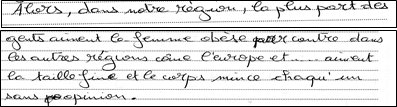 Alors, dans notre région, la plus part des
gents aiment la femme obèse par contre dans
les autres régions côme l'europe et ..... aiment
la taille fine et le corps mince chaqu'un
sans opinion.